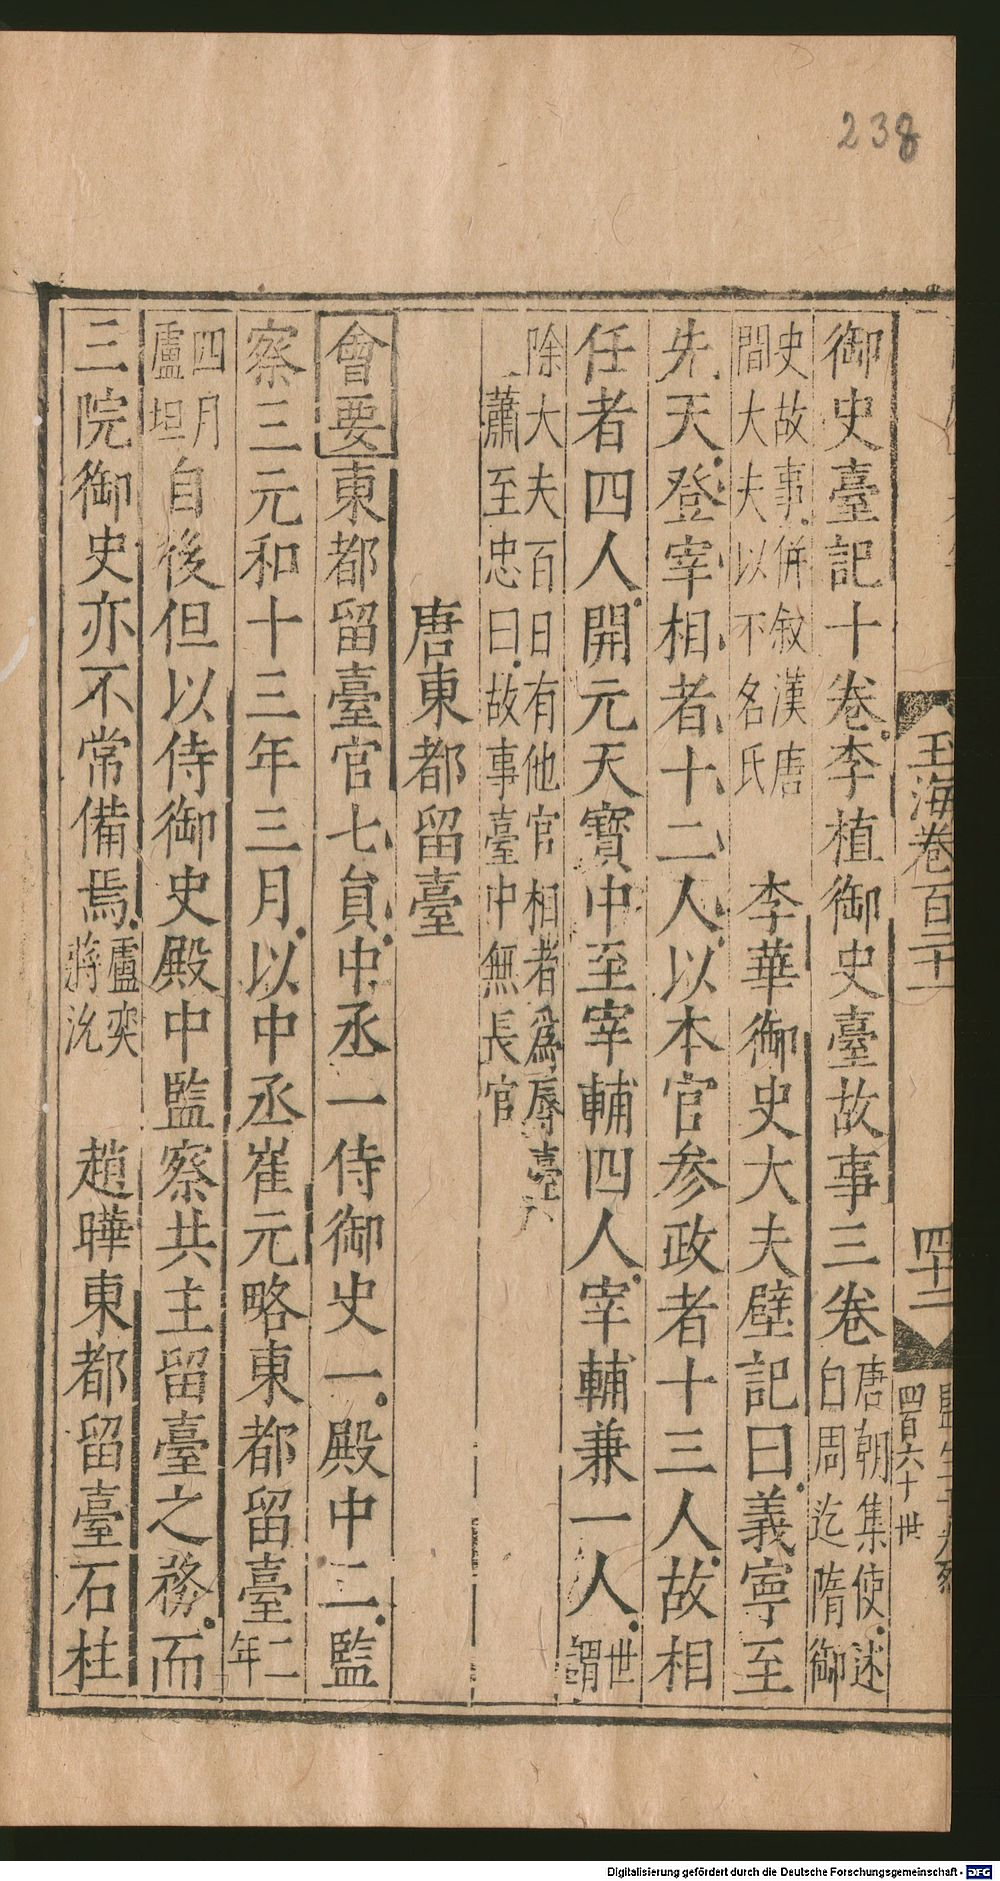 238
玉海卷百二十一
四十二
四百六十 世
御史臺記十卷李植御史臺故事三卷唐朝集使述
自周迄隋御
史故事併叙漢唐
間大夫以不名氏 李華御史大夫壁記曰義寧至
先天登宰相者十二人以本官參政者十三人故相
任者四人開元天寶中至宰輔四人宰輔兼一人世
謂
除大夫百日有他官相者為辱臺
蕭至忠曰故事臺中無長官
唐東都留臺
會要東都留臺官七員中丞一侍御史一殿中二監
察三元和十三年三月以中丞崔元略東都留臺二
年
四月
盧坦自後但以侍御史殿中監察共主留臺之務而
三院御史亦不常備焉盧奕
蔣沇 趙曄東都留臺石柱
Digitalisierung gefördert durch die Deutsche Forschungsgemeinschaft - DFG